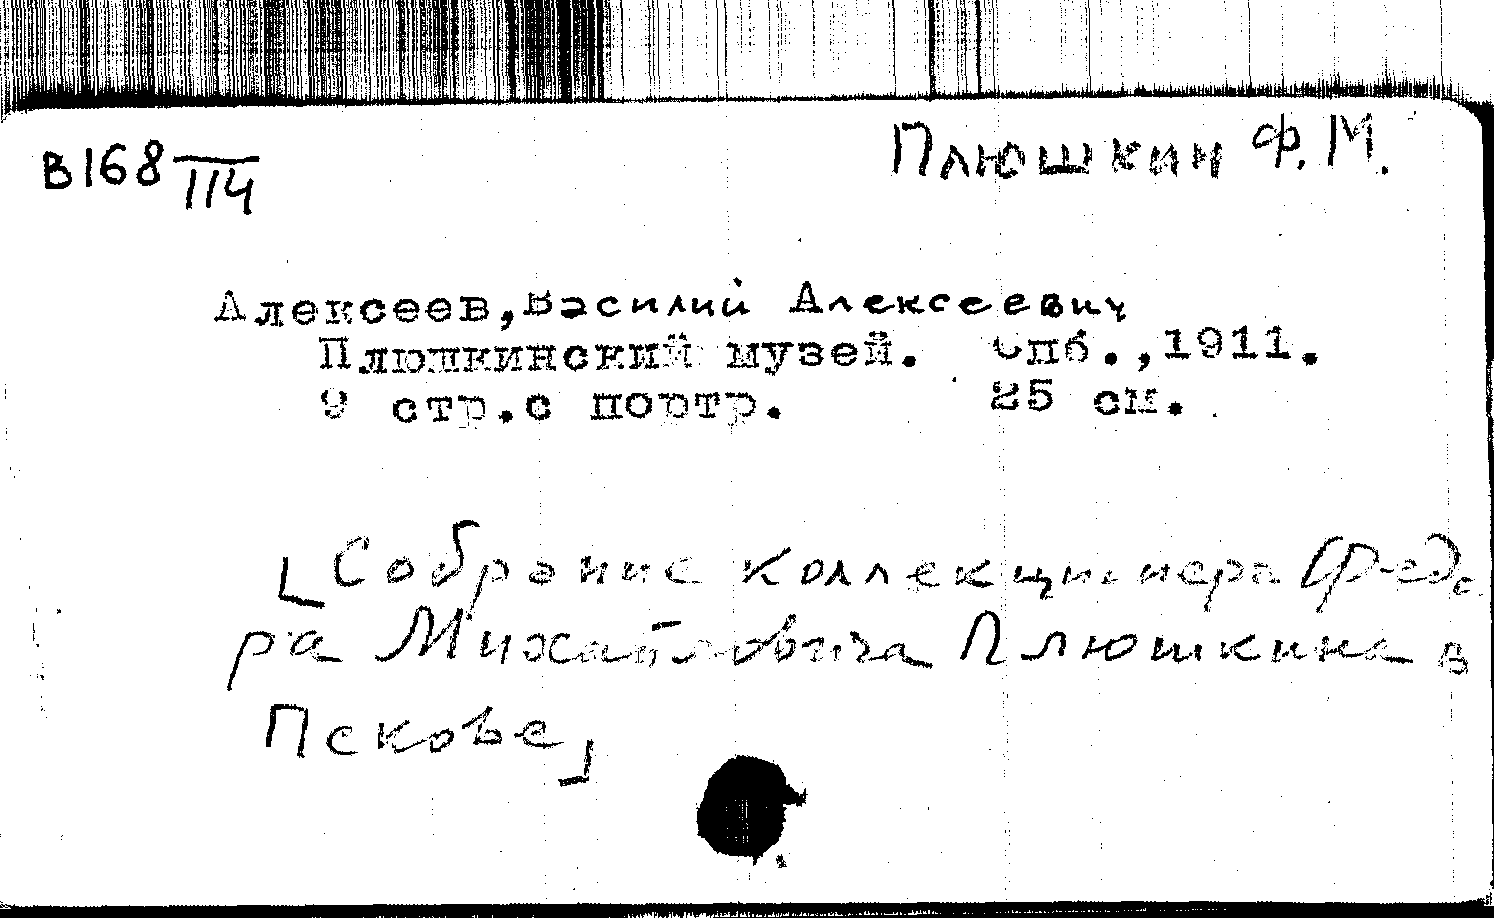 В168 114
Плюшкин Ф.М.
Алексеев, Василий Алексеевич
Плюшкинский музей. Спб.,1911.
9 стр.с портр. 25 см.
[Собрание коллекционера Федо
ра Михайловича Плюшкина в
Пскове]